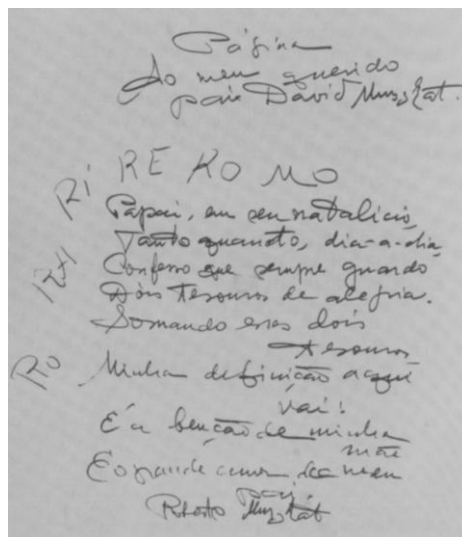 Página
Ao meu querido
pai David Muszkat.
RI RE KO MO
Papai, em seu natalicio,
Tanto quanto, dia-a-dia,
RHI
Confesso que sempre guardo
Dois tesouros de alegria.
Somando esses dois
tesouros,
RO Minha definição aqui
vai:
É a benção de minha
mãe
E o grande amor de meu
pai.
Roberto Muszkat